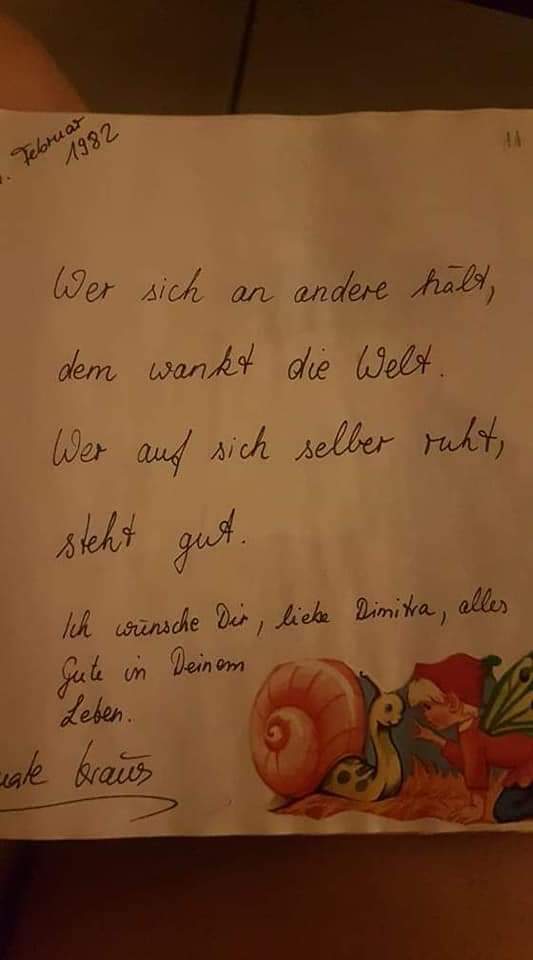 Februar
1982
11
Wer sich an andere hält,
dem wankt die Welt.
Wer auf sich selber ruht,
steht gut.
Ich wünsche Dir, liebe Dimitra, alles
Gute in Deinem
Leben.